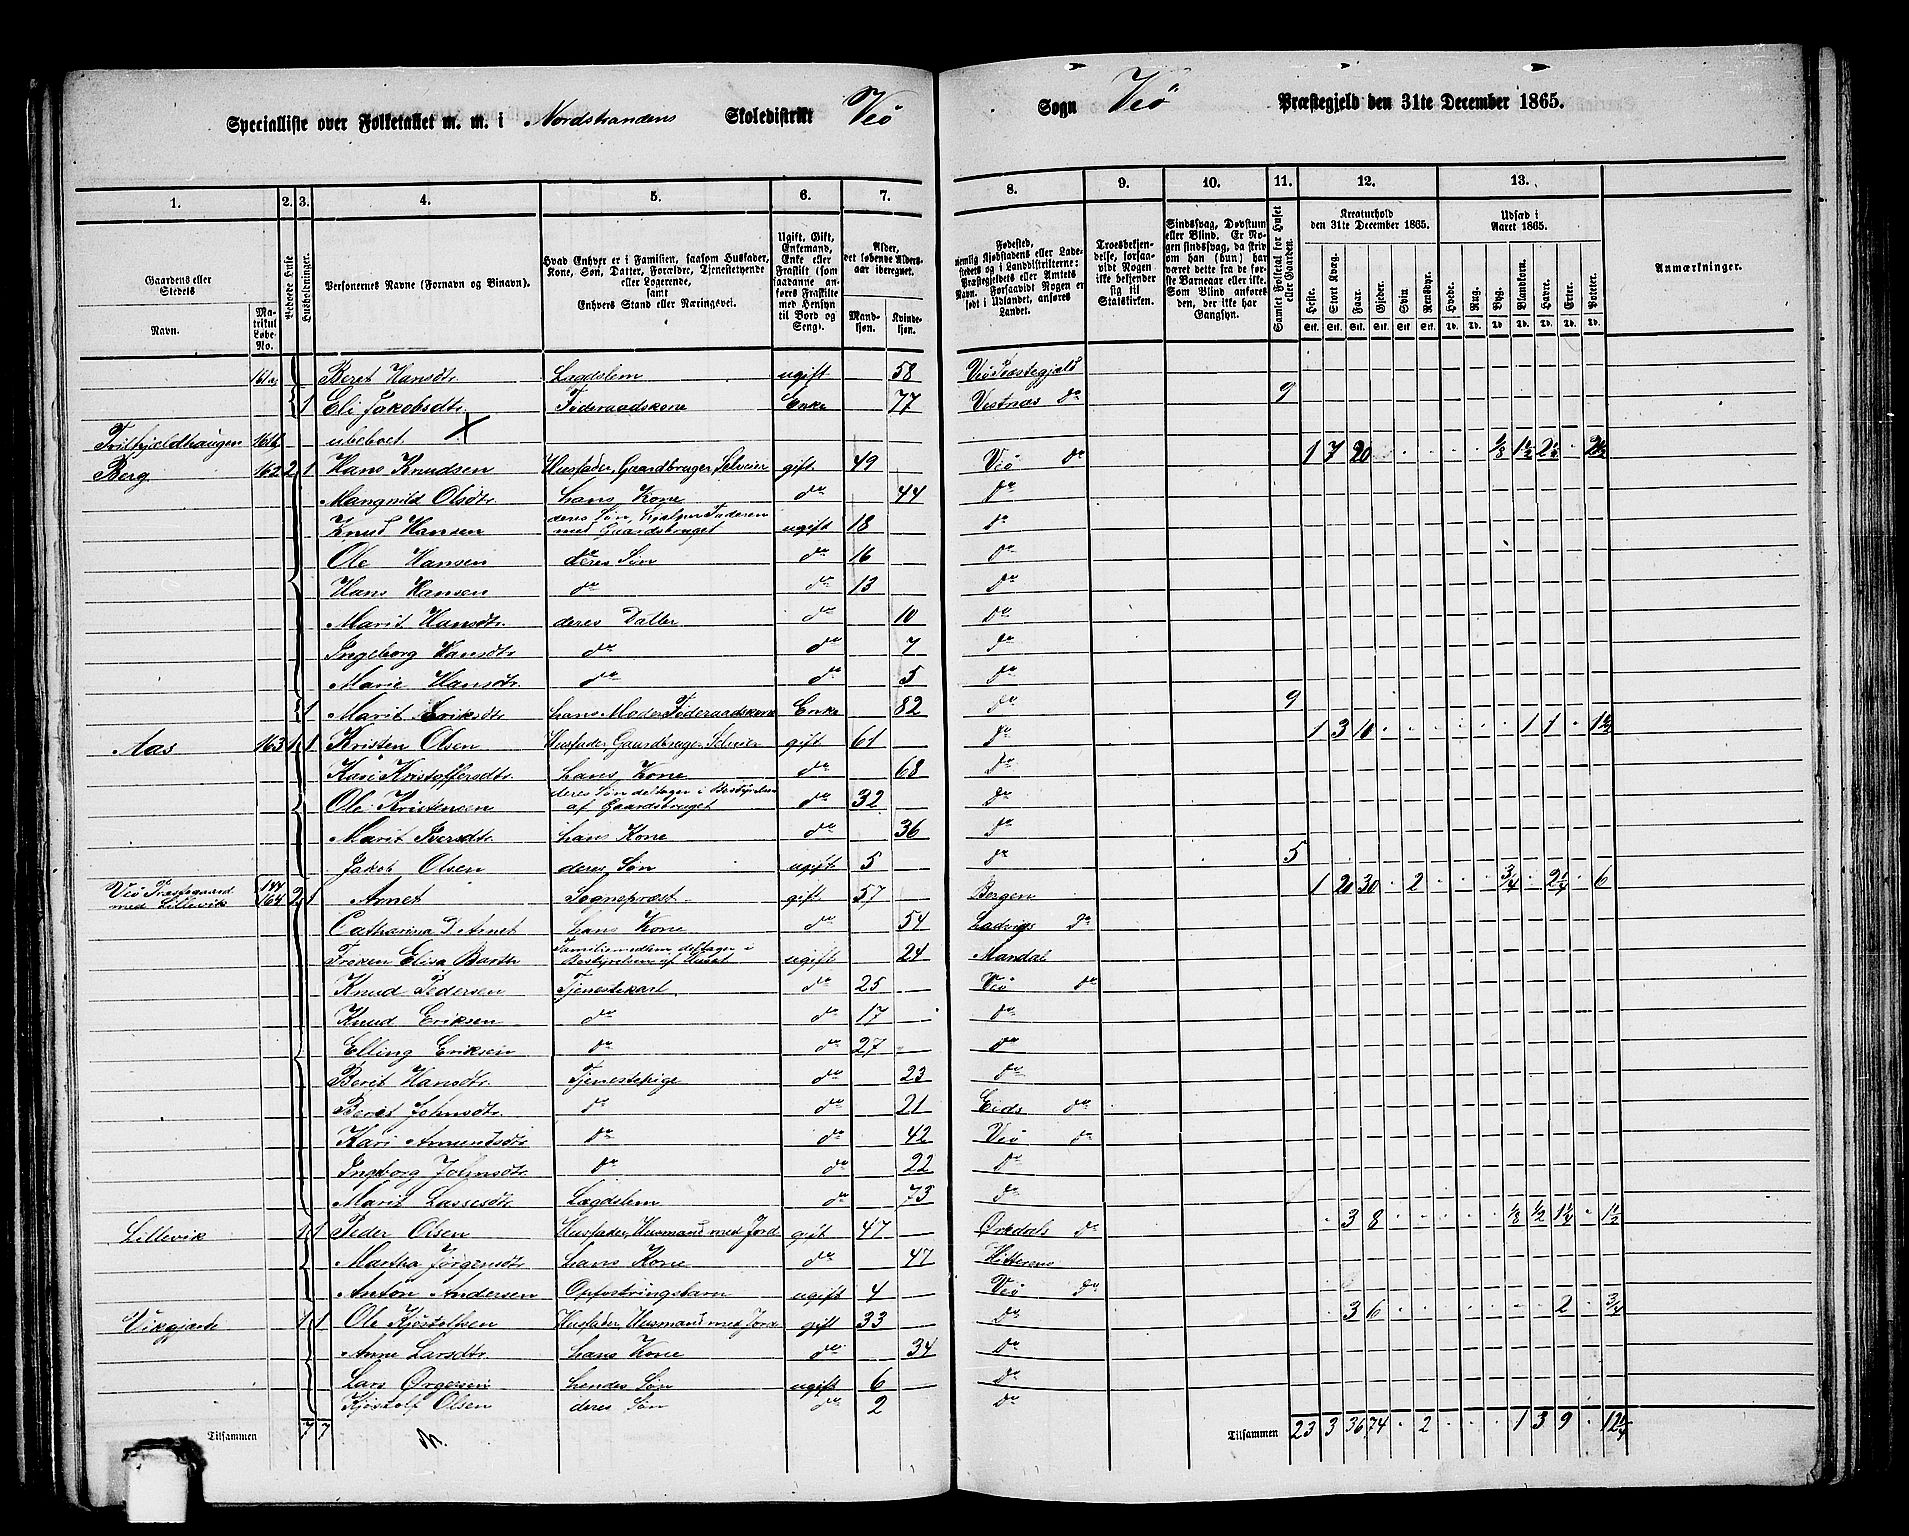 Specialliste over Folketallet m. m. i Nordstrandens Skoledistrikt Veö Sogn Veö Præstegjeld den 31te December 1865.
1. 2. 3. 4. 5. 6. 7. 8. 9. 10. 11. 12. 13.
Gaardens eller Stedets Navn. Matrikul Løbe-No. Beboede Huse Husholdninger. Personernes Navne (Fornavn og Binavn). Hvad Enhver er i Familien, saasom Husfader, Kone, Søn, Datter, Forældre, Tjenestetyende eller Logerende, samt Enhvers Stand eller Næringsvei. Ugift, Gift, Enkemand, Enke eller Fraskilt (som saadanne anføres Fraskilte med Hensyn til Bord og Seng). Alder, det løbende Aldersaar iberegnet. Mandkjøn. Kvindekjøn. Fødested, Troesbekjendelse, forsaavidt Nogen ikke bekjender sig til Statskirken. Sindssvag, Døvstum eller Blind. Samlet Folketal for Huset eller Gaarden. Kreaturhold den 31te December 1865. Udsæd i Aaret 1865. Anmærkninger.
Heste. Stort Kvæg. Faar. Gjeder. Svin. Rensdyr. Hvede. Rug. Byg. Blandkorn. Havre. Erter. Poteter.
161a Beret Hansdtr. Lægdslem ugift 58 Veö Præstegjeld
1 Eli Jakobsdtr. Føderaadskone Enke 77 Vestnæs do 9
161b ubeboet
Berg 162 2 1 Hans Knudsen Husfader, Gaardbruger, Selveier gift 49 Veö do 1 7 20 1/8 1 1/2 2 1/2 2 1/2
Mangnild Olsdtr. hans Kone do 44 do
Knud Hansen deres Søn, hjælper Faderen med Gaardsbruget ugift 18 do
Ole Hansen deres Søn do 16 do
Hans Hansen do do 13 do
Marit Hansdtr. deres Datter do 10 do
Ingeborg Hansdtr. do do 7 do
Marie Hansdtr. do do 5 do
1 Marit Eriksdtr. hans Moder Føderaadskone Enke 82 do 9
Aas 163 1 1 Kristen Olsen Husfader, Gaardbruger, Selveier gift 61 do 1 3 10 1 1 1 1/2
Kari Kristoffersdtr. hans Kone do 68 do
Ole Kristensen deres Søn deltager i Bestyrelsen af Gaardsbruget do 32 do
Marit Iversdtr. hans Kone do 36 do
Jakob Olsen deres Søn ugift 5 do 5
Veö Præstegaard med Lillevik 144 164 2 1 Arnet Sogneprest gift 57 Bergen 1 20 30 2 3/4 2 1/4 6
Catharina D Arnet hans Kone do 54 Ladvigs do
Frøken Elisa Barth Familiemedlem deltager i Bestyrelsen af Huset ugift 24 Mandal
Knud Pedersen Tjenestekarl do 25 Veö do
Knud Eriksen do do 17 do
Elling Eriksen do do 27 do
Berit Hansdtr. Tjenestepige do 23 do
Beret Johnsdtr. do do 21 Eids do
Kari Amundsdtr. do do 42 Veö do
Ingeborg Johnsdtr. do do 22 do
Marit Lassesdtr. Lægdslem do 73 do
Lillevik 1 1 Peder Olsen Husfader, Husmand med Jord gift 47 Orkdals do 3 8 1/8 1/2 1 1/4 1 1/2
Martha Jörgensdtr. hans Kone do 47 Hitterens
Anton Andersen Opfostringsbarn ugift 4 Veö do
Vikgjærde 1 1 Ole Kjöstolfsen Husfader, Husmand med Jord gift 33 do 3 6 2 3/4
Anne Larsdtr. hans Kone do 34 do
Lars Örgersen hendes Søn ugift 6 do
Kjöstolf Olsen deres Søn do 2 do
Tilsammen 7 7 Tilsammen 23 3 36 74 2 1 3 9